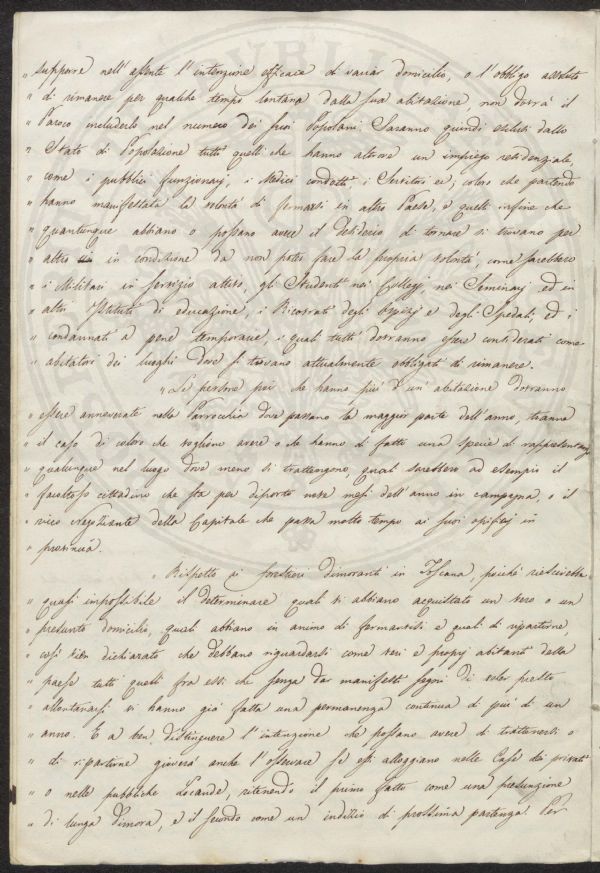 „ supporre nell'assente l'intenzione efficace di variar domicilio, o l'obbligo assoluto
„ di rimanere per qualche tempo lontano dalla sua abitazione, non dovrà il
„ Paroco includerlo nel numero dei suoi Popolani. Saranno quindi esclusi dallo
„ Stato di Popolazione tutti quelli che hanno altrove un impiego residenziale,
„ come i pubblici funzionarj, i Medici condotti, i Servitori ec; coloro che partendo
„ hanno manifestata la volontà di fermarsi in altro Paese, e quelli infine che
„ quantunque abbiano o possano avere il desiderio di tornare si trovano per
„ altro in condizione da non poter fare la propria volontà, come sarebbero
„ i Militari in servizio attivo, gli Studenti nei Collegj, nei Seminarj ed in
„ altri Istituti di educazione, i Ricovrati degli Ospizj e degli Spedali, ed i
„ condannati a pene temporarie, i quali tutti dovranno essere considerati come
„ abitatori dei luoghi dove si trovano attualmente obbligati di rimanere.
„ Le persone poi che hanno più d'un'abitazione dovranno
„ essere annoverate nella Parrocchia dove passano la maggior parte dell'anno, tranne
„ il caso di coloro che vogliono avere o che hanno di fatto una specie di rappresentanza
„ qualunque nel luogo dove meno si trattengono, quali sarebbero ad esempio il
„ facoltoso cittadino che sta per diporto mesi dell'anno in campagna, o il
„ ricco Negoziante della Capitale che passa molto tempo ai suoi opifizj in
„ provincia.
„ Rispetto ai forestieri dimoranti in Toscana, poichè riescirebbe
„ quasi impossibile il determinare quali vi abbiano acquistato un vero o un
„ presunto domicilio, quali abbiano in animo di fermarvisi e quali di ripartirne,
„ così vien dichiarato che debbano riguardarsi come veri e proprj abitanti della
„ paese tutti quelli fra essi che senza dar manifesti segni di voler presto
„ allontanarsi vi hanno già fatta una permanenza continua di più di un
„ anno. E a ben distinguere l'intenzione che possano avere di trattenersi o
„ di ripartirne gioverà anche l'osservare se essi alloggiano nelle Case dei privati
„ o nelle pubbliche Locande, ritenendo il primo fatto come una presunzione
„ di lunga dimora, e il secondo come un indizio di prossima partenza. Per-